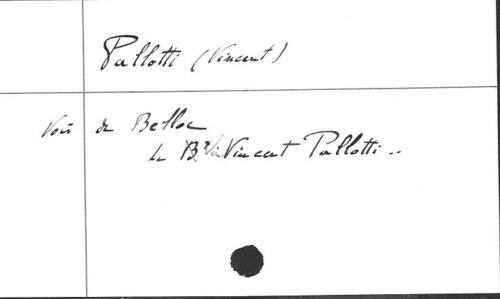 Pallotti (Vincent)
Voir de Belloc
Le Bx Vincent Pallotti ..